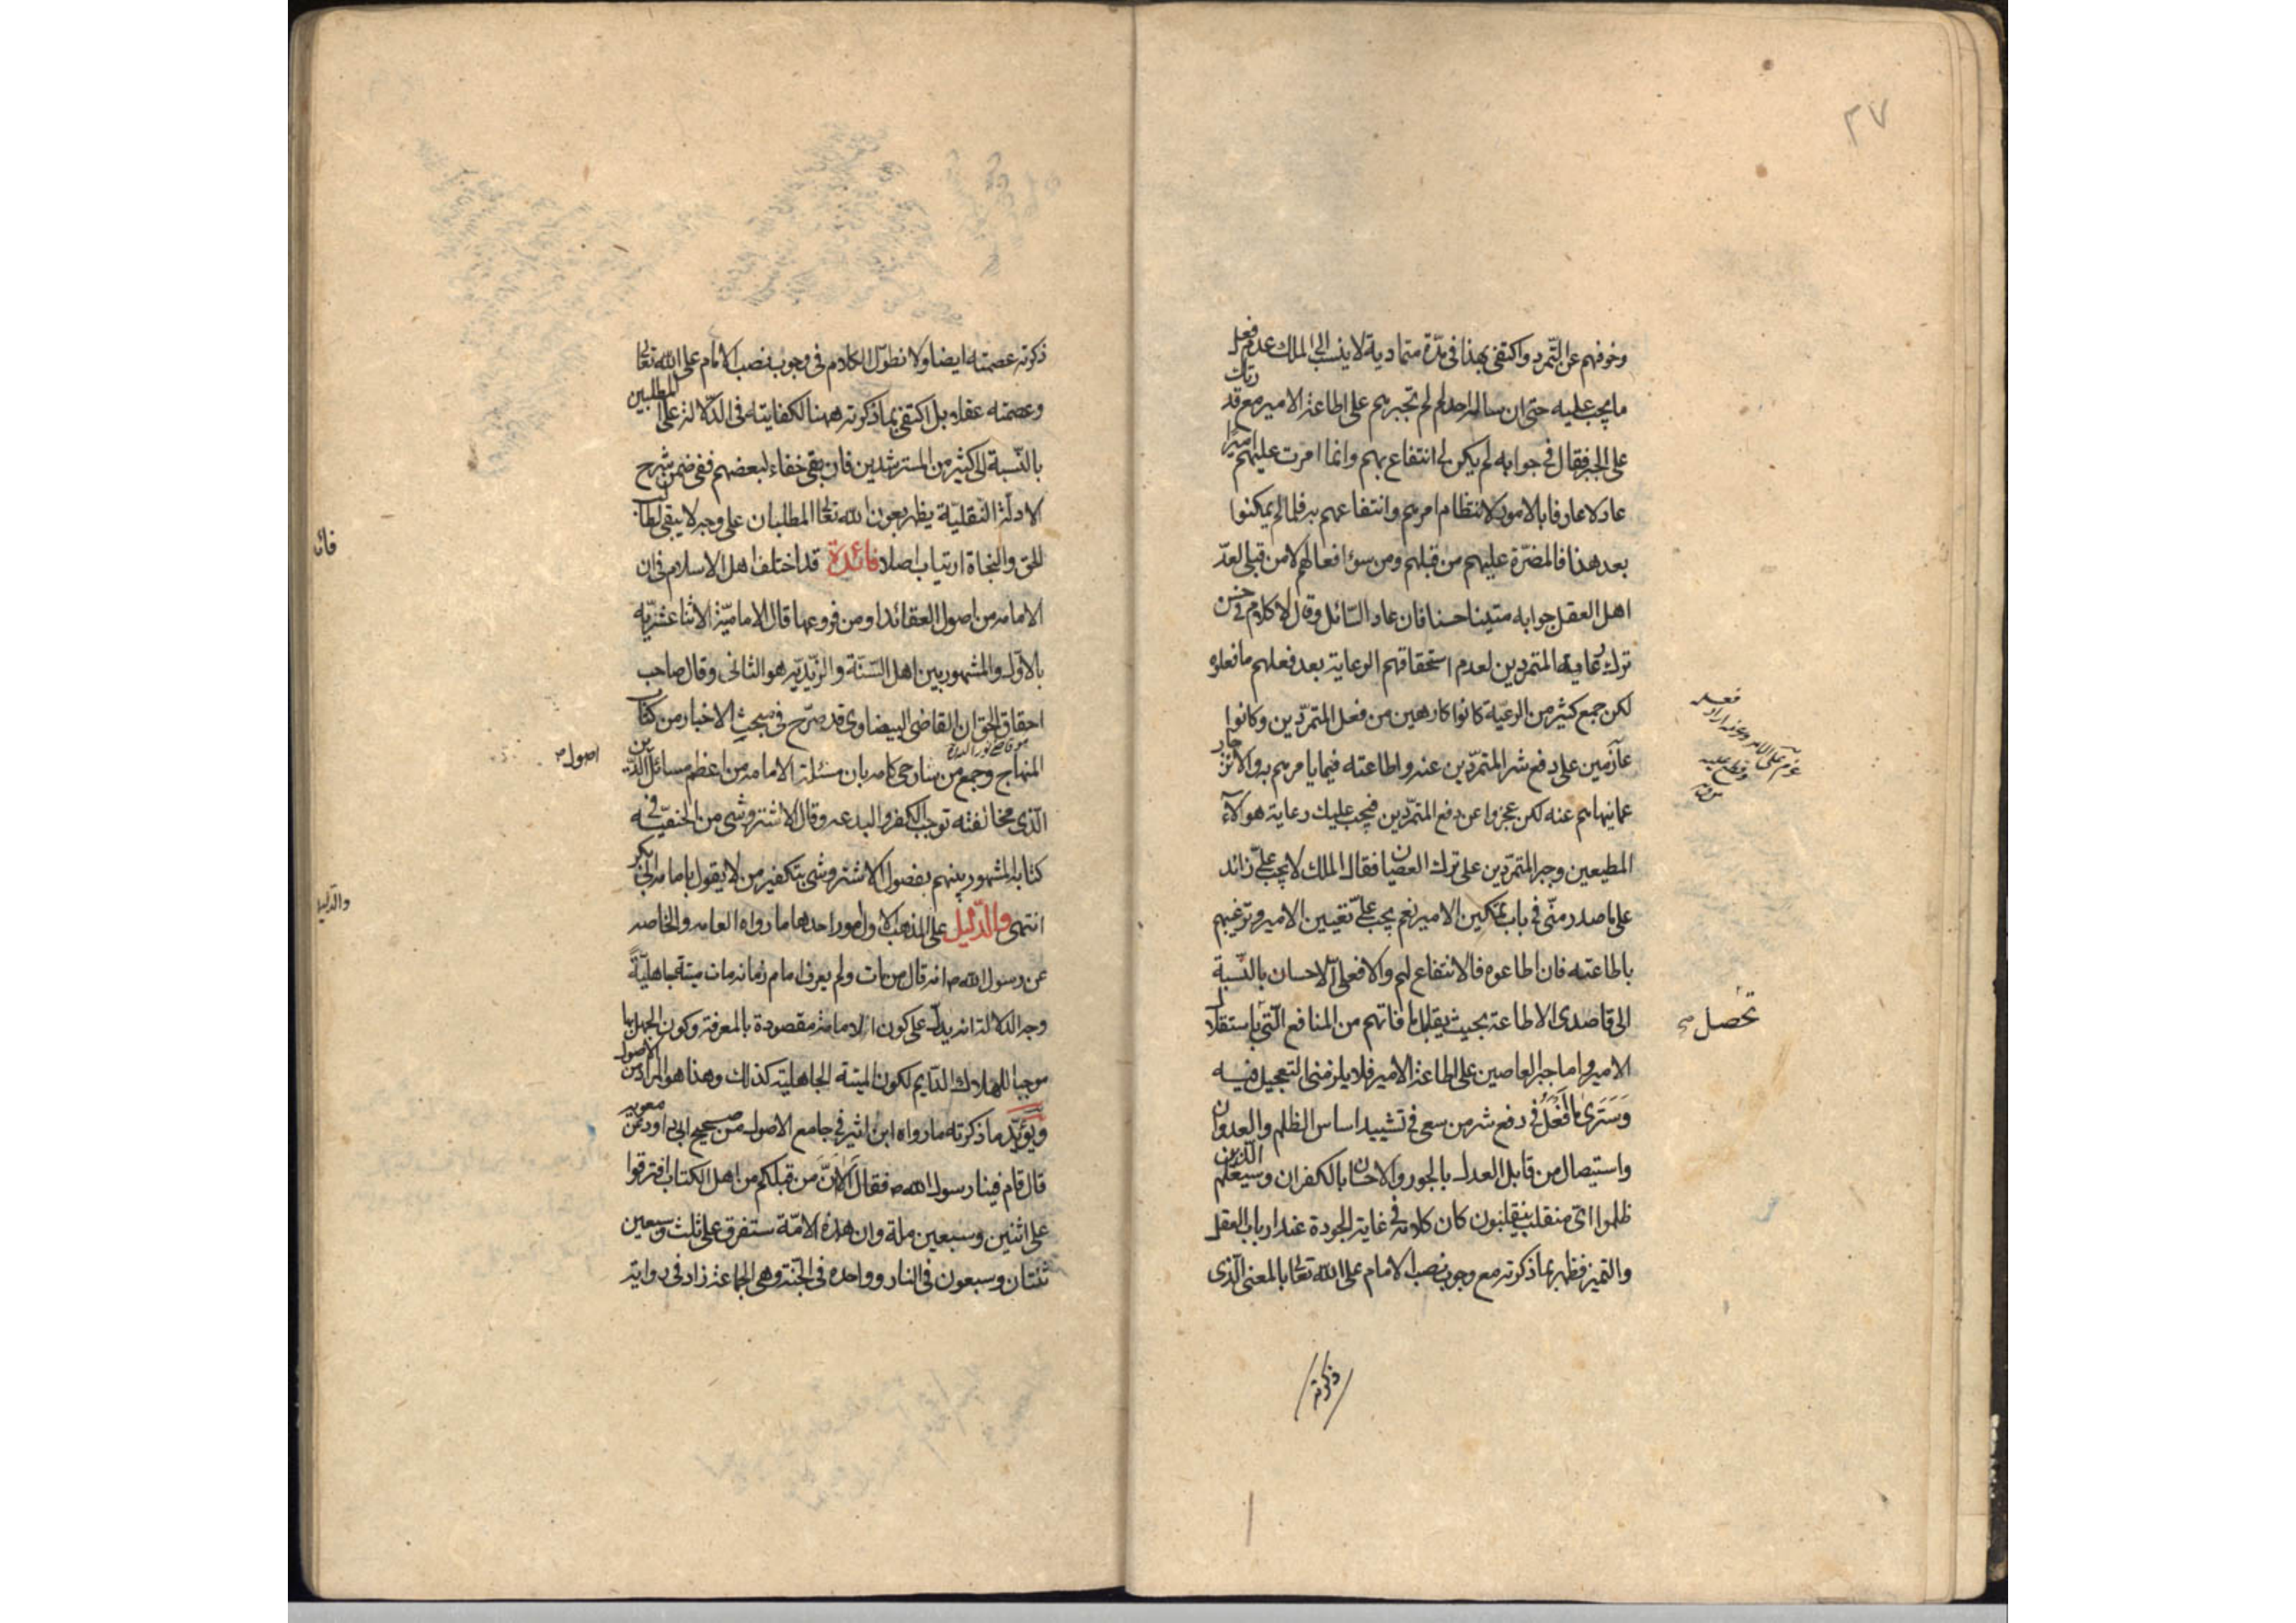 ٢٧
وخوفهم عن التمرد واكتفى بهذا فى مدّة متمادية لا ينسب الى الملك عدم فعل
ما يجب عليه حتى ان سأله احد لم لم تجبرهم على اطاعة الامير مع قدرتك
على الجبر فقال فى جوابه لم يكن لى انتفاع بهم وانما امرت عليهم اميرًا
عادلا عارفا بالامور لانتظام امرهم وانتفاعهم به فلما لم يمكنوا
بعد هذا فالمضرّة عليهم من قبلهم ومن سوء افعالهم لا من قبلى لعدّ
اهل العقل جوابه متينا حسنا فان عاد السّائل وقال لا كلام فى حسن
ترك رعاية المتمردين لعدم استحقاقهم الرعاية بعد فعلهم ما فعلوه
لكن جمع كثير من الرعيّة كانوا كارهين من فعل المتمرّدين وكانوا
عازمين على دفع شر المتمرّدين عنه واطاعته فيما يامرهم به والانزجار
عما ينهاهم عنه لكن عجزوا عن دفع المتمرّدين فيجب عليك رعاية هؤلآء
المطيعين وجبر المتمرّدين على ترك العصيان فقال الملك لا يجب علىّ زائد
على ما صدر منّى فى باب تمكين الامير نعم يجب علىّ تعيين الامير وترغيبهم
باطاعته فان اطاعوه فالانتفاع لهم والا فعلىّ الاحسان بالنّسبة
الى قاصدى الاطاعة بحيث يقابل ما فاتهم من المنافع الّتى باستقلال
تحصل صح
الامير واما جبر العاصين على اطاعة الامير فلا يلزمنى التعجيل فيه
وَسَترى ما افعل فى دفع شر من سعى فى تشييد اساس الظلم والعدوان
واستيصال من قابل العدل بالجور والاحسان بالكفران وسيعلم الّذين
ظلموا اىّ منقلب ينقلبون كان كلامه فى غاية الجودة عند ارباب العقل
والتميز فظهر بما ذكرته مع وجوب نصب الامام على الله تعالى بالمعنى الّذى
ذكرته
ذكرته عصمته ايضا ولا نطوّل الكلام فى وجوب نصب الامام على الله تعالى
وعصمته عقلا بل اكتفى بما ذكرته ههنا لكفايته فى الدّلالة على المطلبين
بالنّسبة الى كثير من المسترشدين فان بقى خفاء لبعضهم ففى ضمن شرح
الادلّة النّقليّة يظهر بعون الله تعالى المطلبان على وجه لا يبقى لطالب
للحق والنجاة ارتياب اصلا فائدة قد اختلف اهل الاسلام فى ان
الامامة من اصول العقائد او من فروعها قال الاماميّة الاثنا عشريّه
بالاوّل والمشهور بين اهل السّنة والزّيديّه هو الثانى وقال صاحب
احقاق الحق ان القاضى البيضاوى قد صرّح فى مبحث الاخبار من كتاب
المنهاج وجمع من شارحى كلامه بان مسئلة الامامة من اعظم مسائل الدّين
اصول صح
الّذى مخالفته توجب الكفر والبدعه وقال الاشتروشى من الحنفيّه فى
كتابه المشهور بينهم بفصول الاشتروشى بتكفير من لا يقول بامامة ابى بكر
انتهى والدّليل على المذهب الاول امور احدها ما رواه العامه والخاصه
عن رسول الله ص انه قال من مات ولم يعرف امام زمانه مات ميتة جاهليّةً
وجه الدلالة انه يدلّ على كون الامامة مقصودة بالمعرفة وكون الجهل بها
موجبا للهلاك الدّايم لكون الميتة الجاهلية كذلك وهذا هو المراد من الاصول
ويؤيّد ما ذكرته ما رواه ابن اثير فى جامع الاصول من صحيح ابى داود عن معوية
قال قام فينا رسول الله ص فقال اَلا اِنّ مَن قبلكم من اهل الكتاب افترقوا
على اثنين وسبعين ملة وان هذه الامّة ستفرق على ثلث وسبعين
ثنتان وسبعون فى النار وواحده فى الجنة وهى الجماعة زاد فى رواية
والدّليل